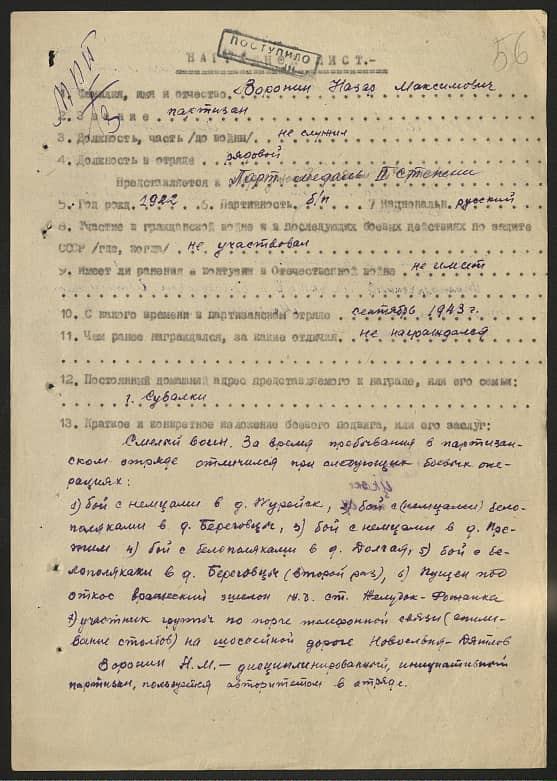 ПОСТУПИЛО
56
НАГРАДНОЙ ЛИСТ.-
1. Фамилия, имя и отчество. Воронин Назар Максимович
2. Звание партизан
3. Должность, часть /до войны/. не служил
4. Должность в отряде рядовой
Представляется к Парт. медаль II степени
5. Год рожд. 1922 6. Партийность б/п 7 Национальн. русский
8. Участие в гражданской войне и в последующих боевых действиях по защите
СССР /где, когда/ не участвовал
9. Имеет ли ранения и контузии в Отечественной войне не имеет
10. С какого времени в партизанском отряде. сентябрь 1943 г.
11. Чем ранее награждался, за какие отличия. не награждался
12. Постоянный домашний адрес представляемого к награде, или его семьи:
г. Сувалки
13. Краткое и конкретное изложение боевого подвига, или его заслуг:
Смелый воин. За время пребывания в партизан-
ском отряде отличился при следующих боевых опе-
рациях:
1) бой с немцами в д. 2) бой с (немцами) бело-
поляками в д. Береговцы, 3) бой с немцами в д.
4) бой с белополяками в д. Долгая, 5) бой с бе-
лополяками в д. Береговцы (второй раз), 6) Пущен под
откос вражеский эшелон ж.д. ст. Желудок-
7) участник группы по порче телефонной связи (спили-
вание столбов) на шоссейной дороге Новоельня-Дятлов
Воронин Н.М. – дисциплинированный, инициативный
партизан, пользуется авторитетом в отряде.